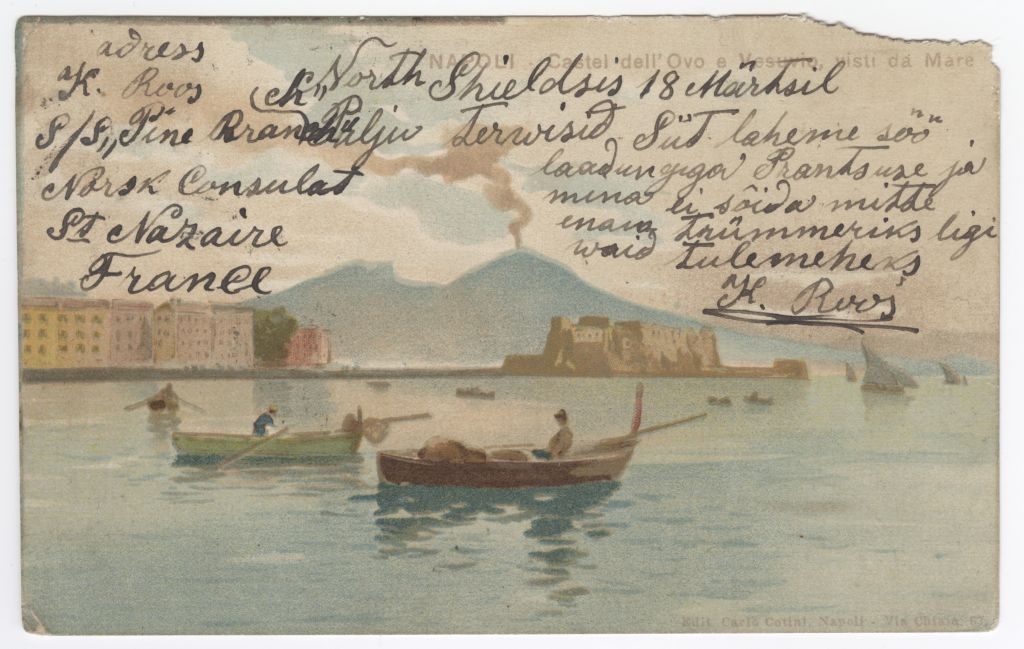 NAPOLI - Castel dell'Ovo e Vesuvio, visti da Mare
adress
K. Roos
S/S „Pine Branch"
Norsk Consulat
St Nazaire
France
North Shieldsis 18 Märtsil
Palju terwisid Siit laheme söö"
laadungiga Prantsuse ja
mina ei sõida mitte
enam trümmeriks ligi
waid tulemeheks
K. Roos
Edit. Carlo Cotini, Napoli - Via Chiaia 67.